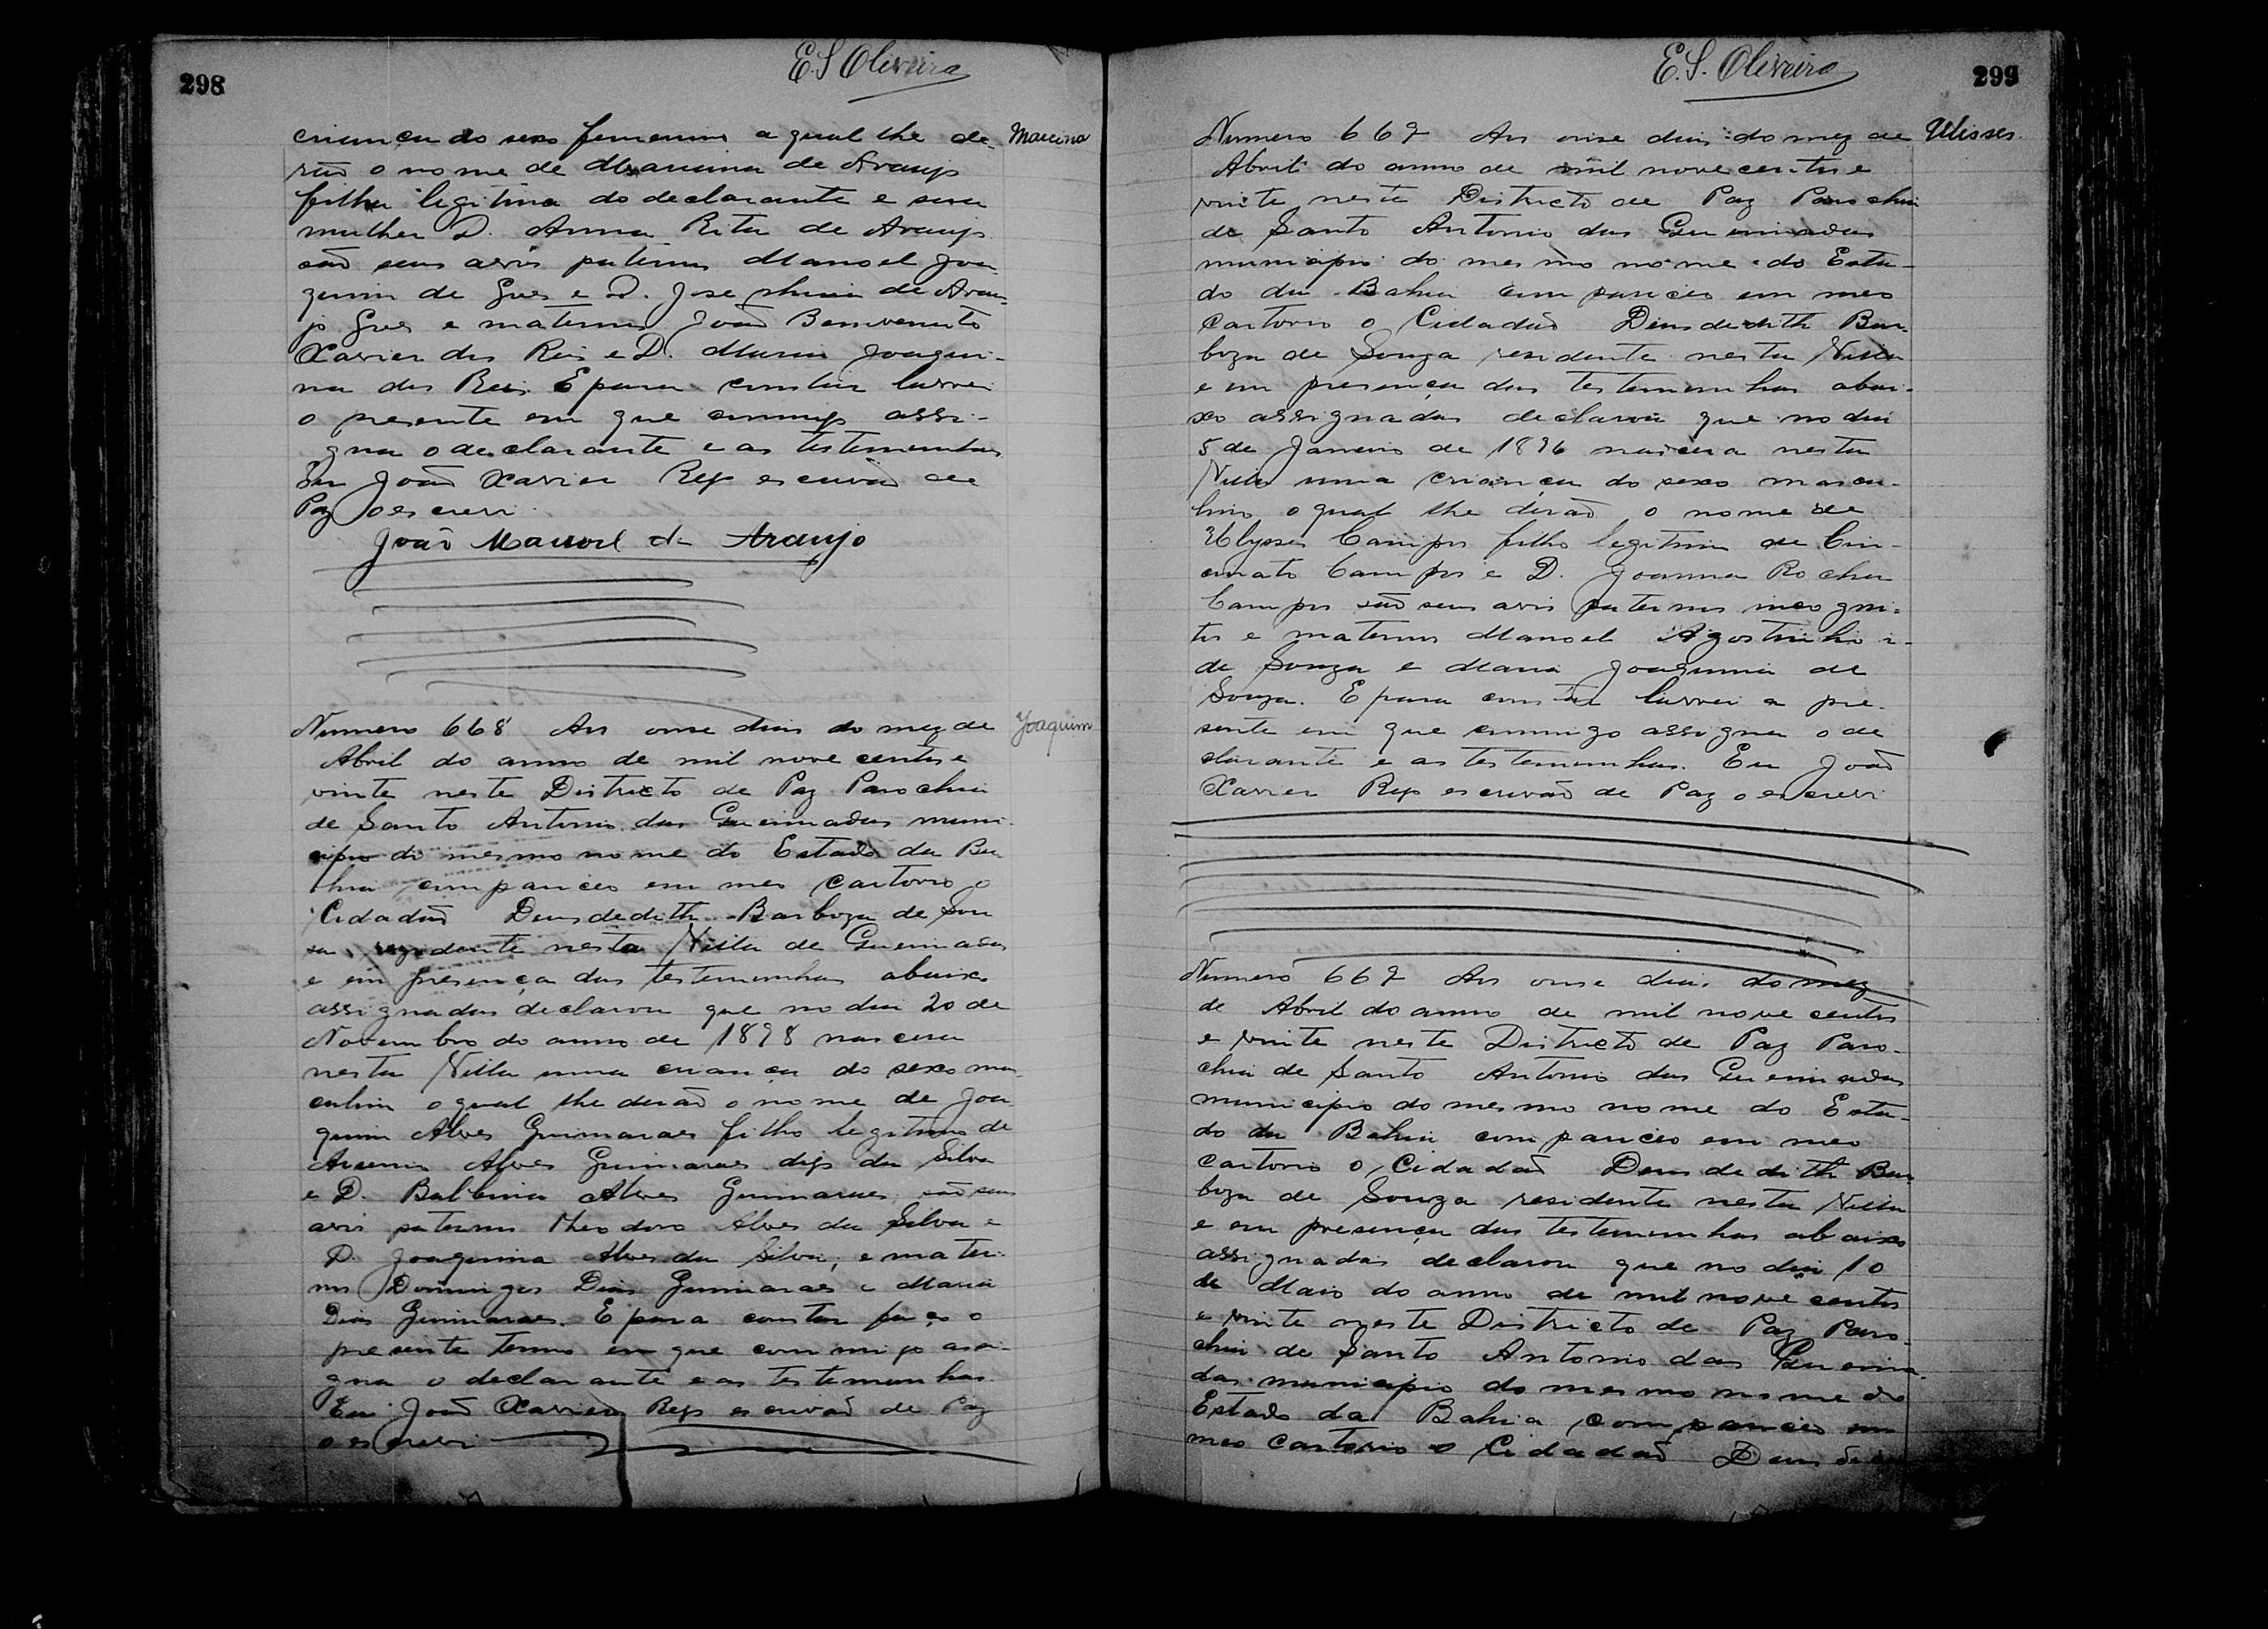 298
E. S. Oliveira
criança do sexo femenino a qual lhe de-
Marcina
rão o nome de Marcina de Araujo
filha legitima do declarante e sua
mulher D. Anna Rita de Araujo
são seus avós paternos Manoel Joa-
quim de Goes e D. Josephina de Arau-
jo Goes e maternos João Bemvenuto
Xavier dos Reis e D. Maria Joaqui-
na dos Reis. E para constar lavrei
o presente em que commigo assi-
gna o declarante e as testemunhas
Eu João Xavier Reis escrivão de
Paz o escrevi
João Manoel de Araujo
Numero 668 Aos onse dias do mez de
Joaquim
Abril do anno de mil nove centos e
vinte neste Districto de Paz Parochia
de Santo Antonio das Queimadas muni-
cipio do mesmo nome do Estado da Ba-
hia compareceo em meo cartorio o
Cidadão Deusdedith Barboza de Sou
sa rezidente nesta Villa de Queimadas
e em presença das testemunhas abaixo
assignadas declarou que no dia 20 de
Novembro do anno de 1898 nascera
nesta Villa uma criança do sexo mas-
culino o qual lhe derão o nome de Joa
quim Alves Guimaraes filho legitimo de
Arsenio Alves Guimaraes digo da Silva
e D. Balbina Alves Guimaraes, são seus
avós paternos Theodoro Alves da Silva e
D. Joaquina Alves da Silva, e mater-
nos Domingos Dias Guimaraes e Maria
Dias Guimaraes. E para constar faço o
presente termo em que commigo assi-
gna o declarante e as testemunhas.
Eu João Xavier Reis escrivão de Paz
o escrevi
E. S. Oliveira
299
Numero 669 Aos onse dias do mez de
Ulisses.
Abril do anno de mil nove centos e
vinte neste Districto de Paz Parochia
de Santo Antonio das Queimadas
municipio do mesmo nome do Esta-
do da Bahia compareceo em meo
cartorio o Cidadão Deusdedith Bar-
boza de Souza residente nesta Villa
e em presença das testemunhas abai-
xo assignadas declarou que no dia
5 de Janeiro de 1896 nascera nesta
Villa uma criança do sexo mascu-
lino o qual lhe derão o nome de
Ulysses Campos filho legitimo de Cin-
cinato Campos e D. Joanna Rocha
Campos são seus avós paternos incogni-
tos e maternos Manoel Agostinho
de Souza e Maria Joaquina de
Souza. E para constar lavrei a pre-
sente em que commigo assigna o de
clarante e as testemunhas. Eu João
Xavier Reis escrivão de Paz o escrevi
Numero 669 Aos onse dias do mez
de Abril do anno de mil nove centos
e vinte neste Districto de Paz Paro-
chia de Santo Antonio das Queimadas
municipio do mesmo nome do Esta-
do da Bahia compareceo em meo
cartorio o Cidadão Deusdedith Bar
boza de Souza residente nesta Villa
e em presença das testemunhas abaixo
assignadas declarou que no dia 10
de Maio do anno de mil nove centos
e vinte neste Districto de Paz Paro-
chia de Santo Antonio das Queima-
das municipio do mesmo nome do
Estado da Bahia compareceo em
meo cartorio o Cidadão Deusde